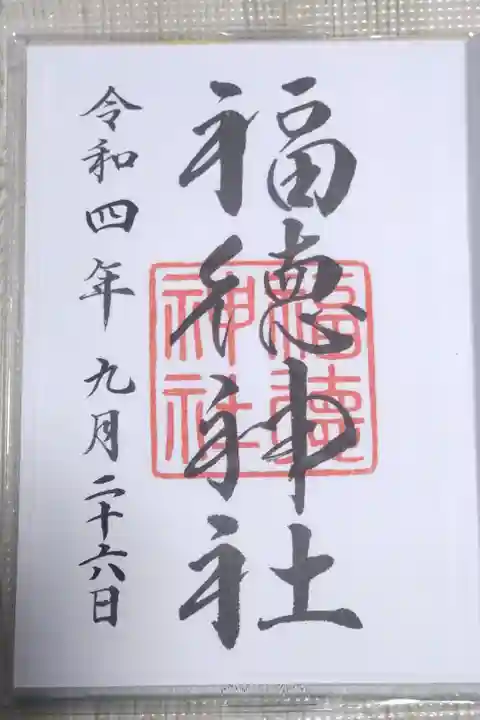 福徳神社
福徳神社
令和四年九月二十六日